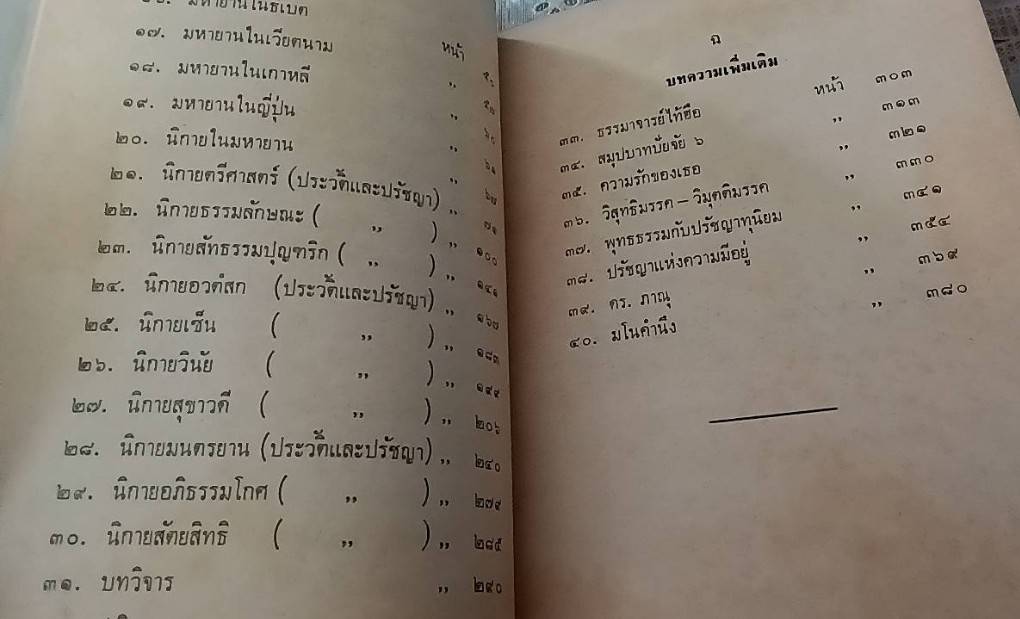 ๑๖. มหายานในธิเบต
๑๗. มหายานในเวียตนาม หน้า
๑๘. มหายานในเกาหลี ,,
๑๙. มหายานในญี่ปุ่น ,,
๒๐. นิกายในมหายาน ,,
๒๑. นิกายตรีศาสตร์ (ประวัติและปรัชญา) ,, ๖๗
๒๒. นิกายธรรมลักษณะ ( ,, ) ,, ๗๑
๒๓. นิกายสัทธรรมปุญฑริก ( ,, ) ,, ๑๐๐
๒๔. นิกายอวตํสก (ประวัติและปรัชญา) ,, ๑๔๑
๒๕. นิกายเซ็น ( ,, ) ,, ๑๖๗
๒๖. นิกายวินัย ( ,, ) ,, ๑๘๓
๒๗. นิกายสุขาวดี ( ,, ) ,, ๑๙๙
๒๘. นิกายมนตรยาน (ประวัติและปรัชญา) ,, ๒๐๖
๒๙. นิกายอภิธรรมโกศ ( ,, ) ,, ๒๔๐
๓๐. นิกายสัตยสิทธิ ( ,, ) ,, ๒๗๙
๓๑. บทวิจาร ,, ๒๘๕
๒๙๐
ฉ
บทความเพิ่มเติม
๓๓. ธรรมาจารย์ไท้ฮือ หน้า ๓๐๓
๓๔. สมุปบาทปัยจัย ๖ ,, ๓๑๓
๓๕. ความรักของเธอ ,, ๓๒๑
๓๖. วิสุทธิมรรค – วิมุตติมรรค ,, ๓๓๐
๓๗. พุทธธรรมกับปรัชญาทุนิยม ,, ๓๔๑
๓๘. ปรัชญาแห่งความมีอยู่ ,, ๓๕๔
๓๙. ดร. ภาณุ ,, ๓๖๙
๔๐. มโนคำนึง ,, ๓๘๐